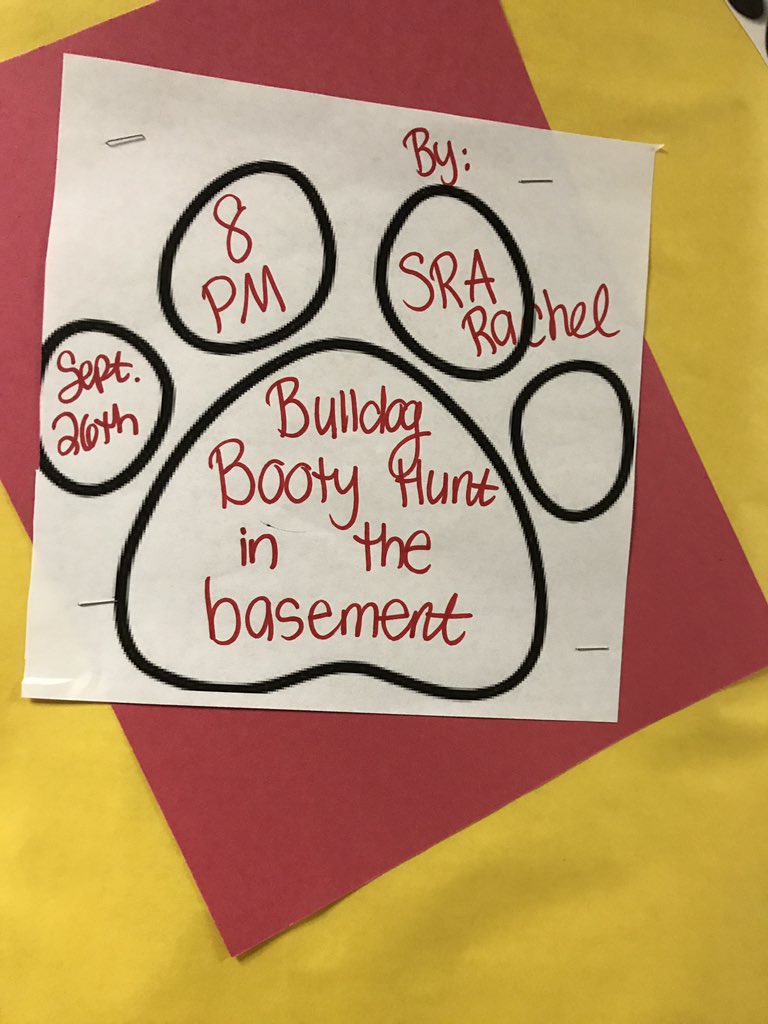 By:
8
PM
SRA
Rachel
Sept.
26th
Bulldog
Booty Hunt
in the
basement